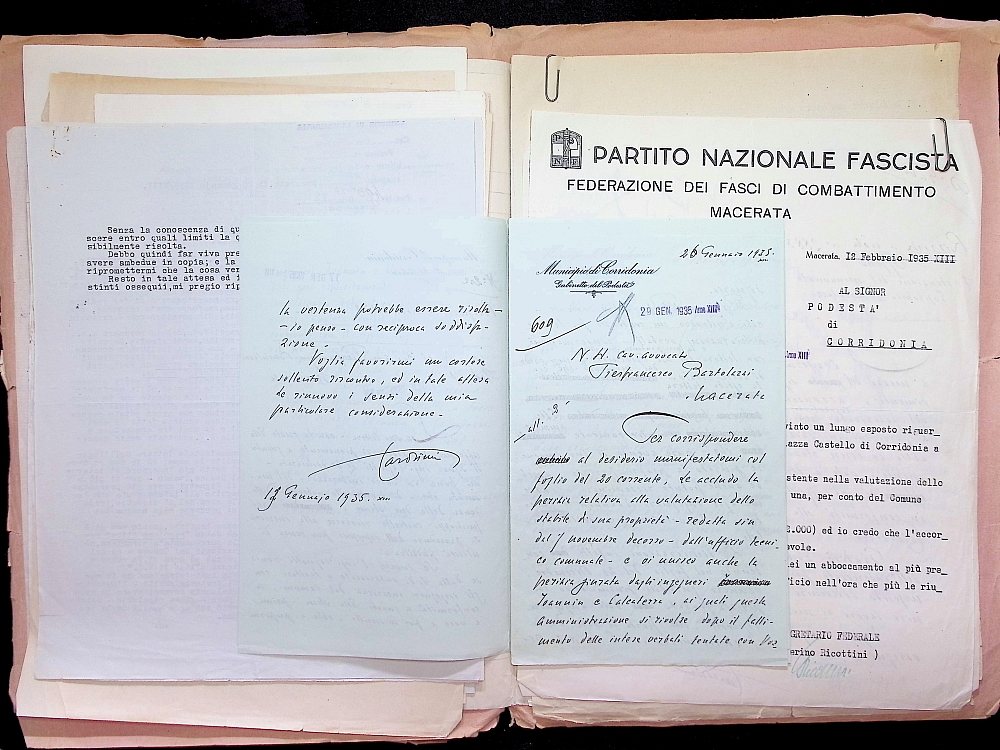 Senza la conoscenza di qu
scere entro quali limiti la q
sibilmente risolta.
Debbo quindi far viva pre
avere ambedue in copia; e la
ripromettermi che la cosa ver
Resto in tale attesa ed i
stinti ossequii,mi pregio rip
la vertenza potrebbe essere risolta-
- io penso - con reciproca soddisfa-
zione.
Voglia favorirmi un cortese
sollecito riscontro, ed in tale attesa
Le rinnovo i sensi della mia
particolare considerazione.
12 Gennaio 1935. XIII
26 Gennaio 1935.
XIII
Municipio di Corridonia
Gabinetto del Podestà
609
29 GEN. 1935 Anno XIII
N. H. Cav. avvocato
Pierfrancesco Bartolazzi
Macerata
all. 2
Per corrispondere
al desiderio manifestatomi col
foglio del 20 corrente, Le accludo la
perizia relativa alla valutazione dello
stabile di sua proprietà - redatta sin
dal 7 novembre decorso - dall'ufficio tecni-
co comunale - e vi unisco anche la
perizia giurata dagli ingegneri
Ioannin e Calcaterra, ai quali questa
Amministrazione si rivolse dopo il falli-
mento delle intese verbali tentate con Vos
P N F
PARTITO NAZIONALE FASCISTA
FEDERAZIONE DEI FASCI DI COMBATTIMENTO
MACERATA
Macerata, 12 Febbraio 1935 XIII
AL SIGNOR
PODESTA'
di
CORRIDONIA
Anno XIII
viato un lungo esposto riguar_
iazza Castello di Corridonia a
stente nella valutazione dello
una, per conto del Comune
2.000) ed io credo che l'accor_
vole.
lei un abboccamento al più pre_
ficio nell'ora che più le riu_
GRETARIO FEDERALE
erino Ricottini )